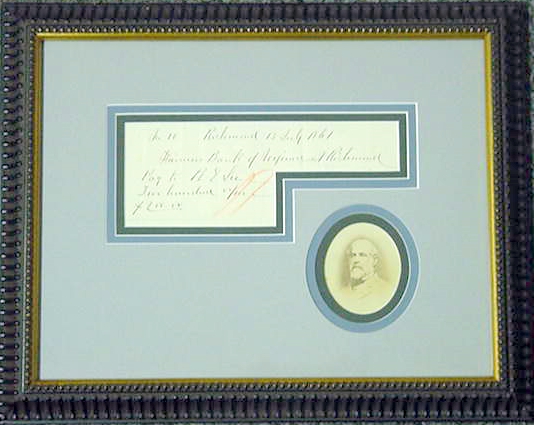 No 10 Richmond 15 July 1861
Farmers Bank of Virginia at Richmond
Pay to R E Lee
Two hundred
$